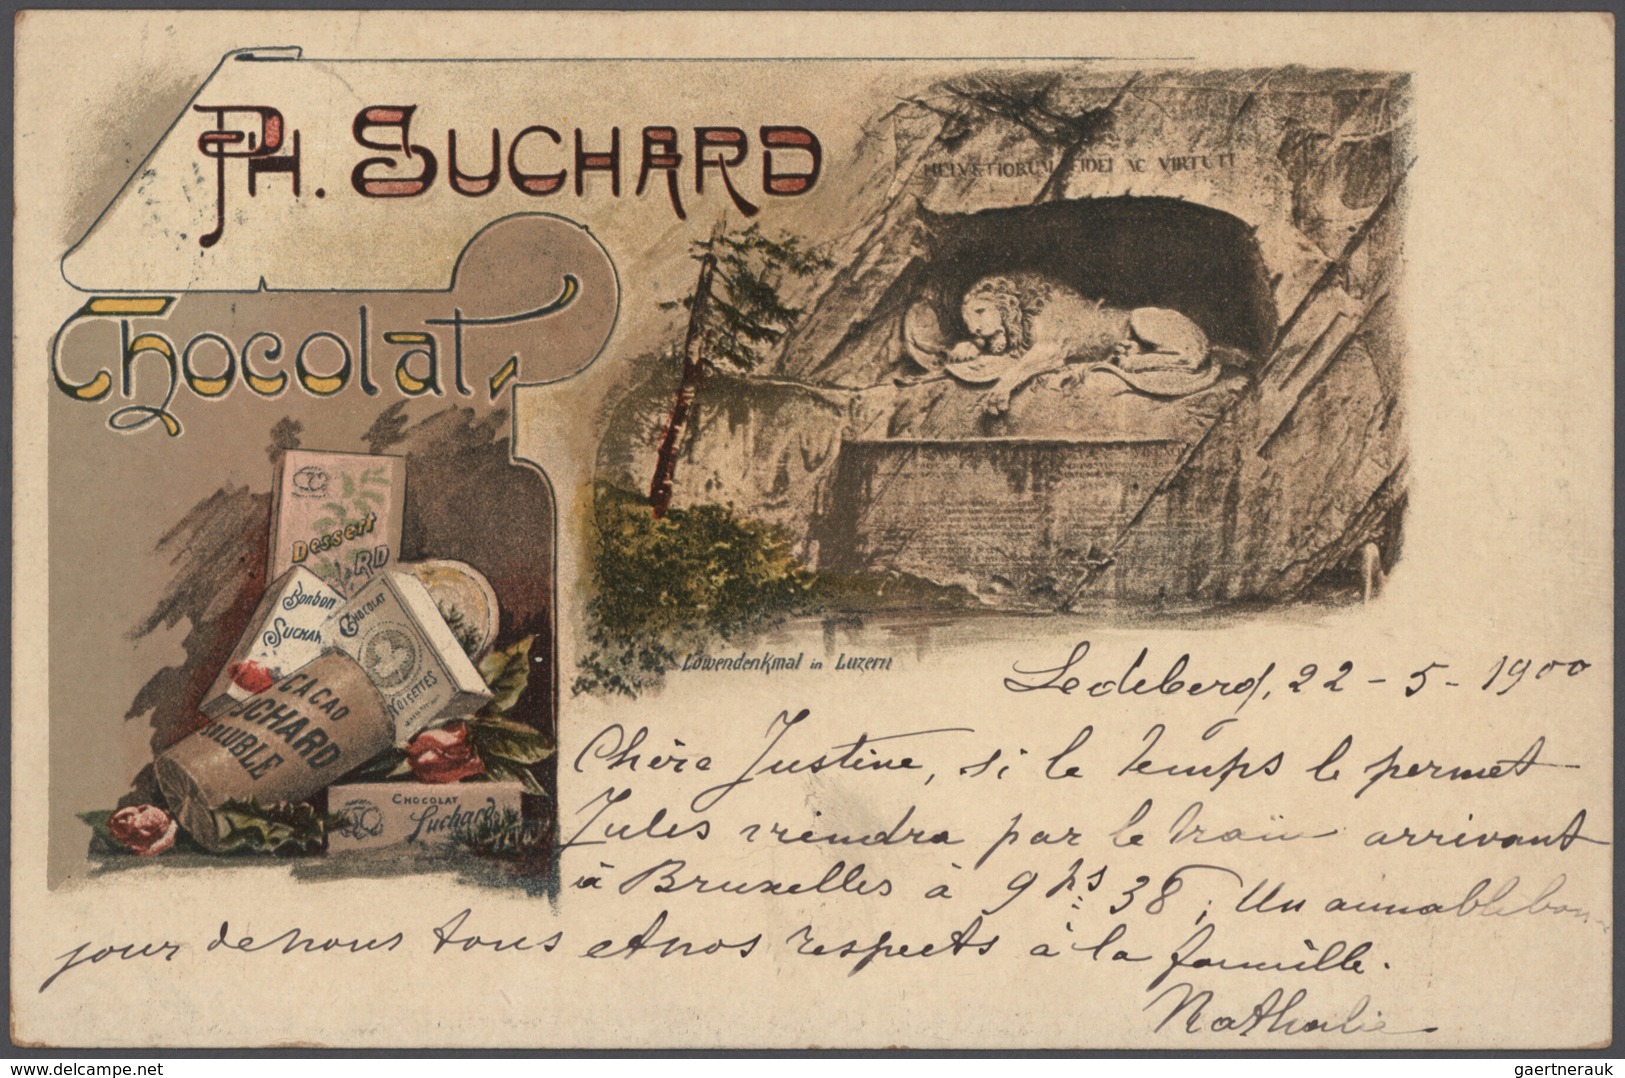 PH. SUCHARD
Chocolat
HELVETIORUM FIDEI AC VIRTUTI
Dessert
RD
Bonbon
SUCHAR
CHOCOLAT
NOISETTES
CACAO
UCHARD
SOLUBLE
CHOCOLAT
Suchard
Löwendenkmal in Luzern
Ledeberg, 22 - 5 - 1900
Chère Justine, si le temps le permet
Jules viendra par le train arrivant
à Bruxelles à 9 hs 38; Un aimable bon-
jour de nous tous et nos respects à la famille.
Nathalie
© Delcampe.net
gaertnerauk